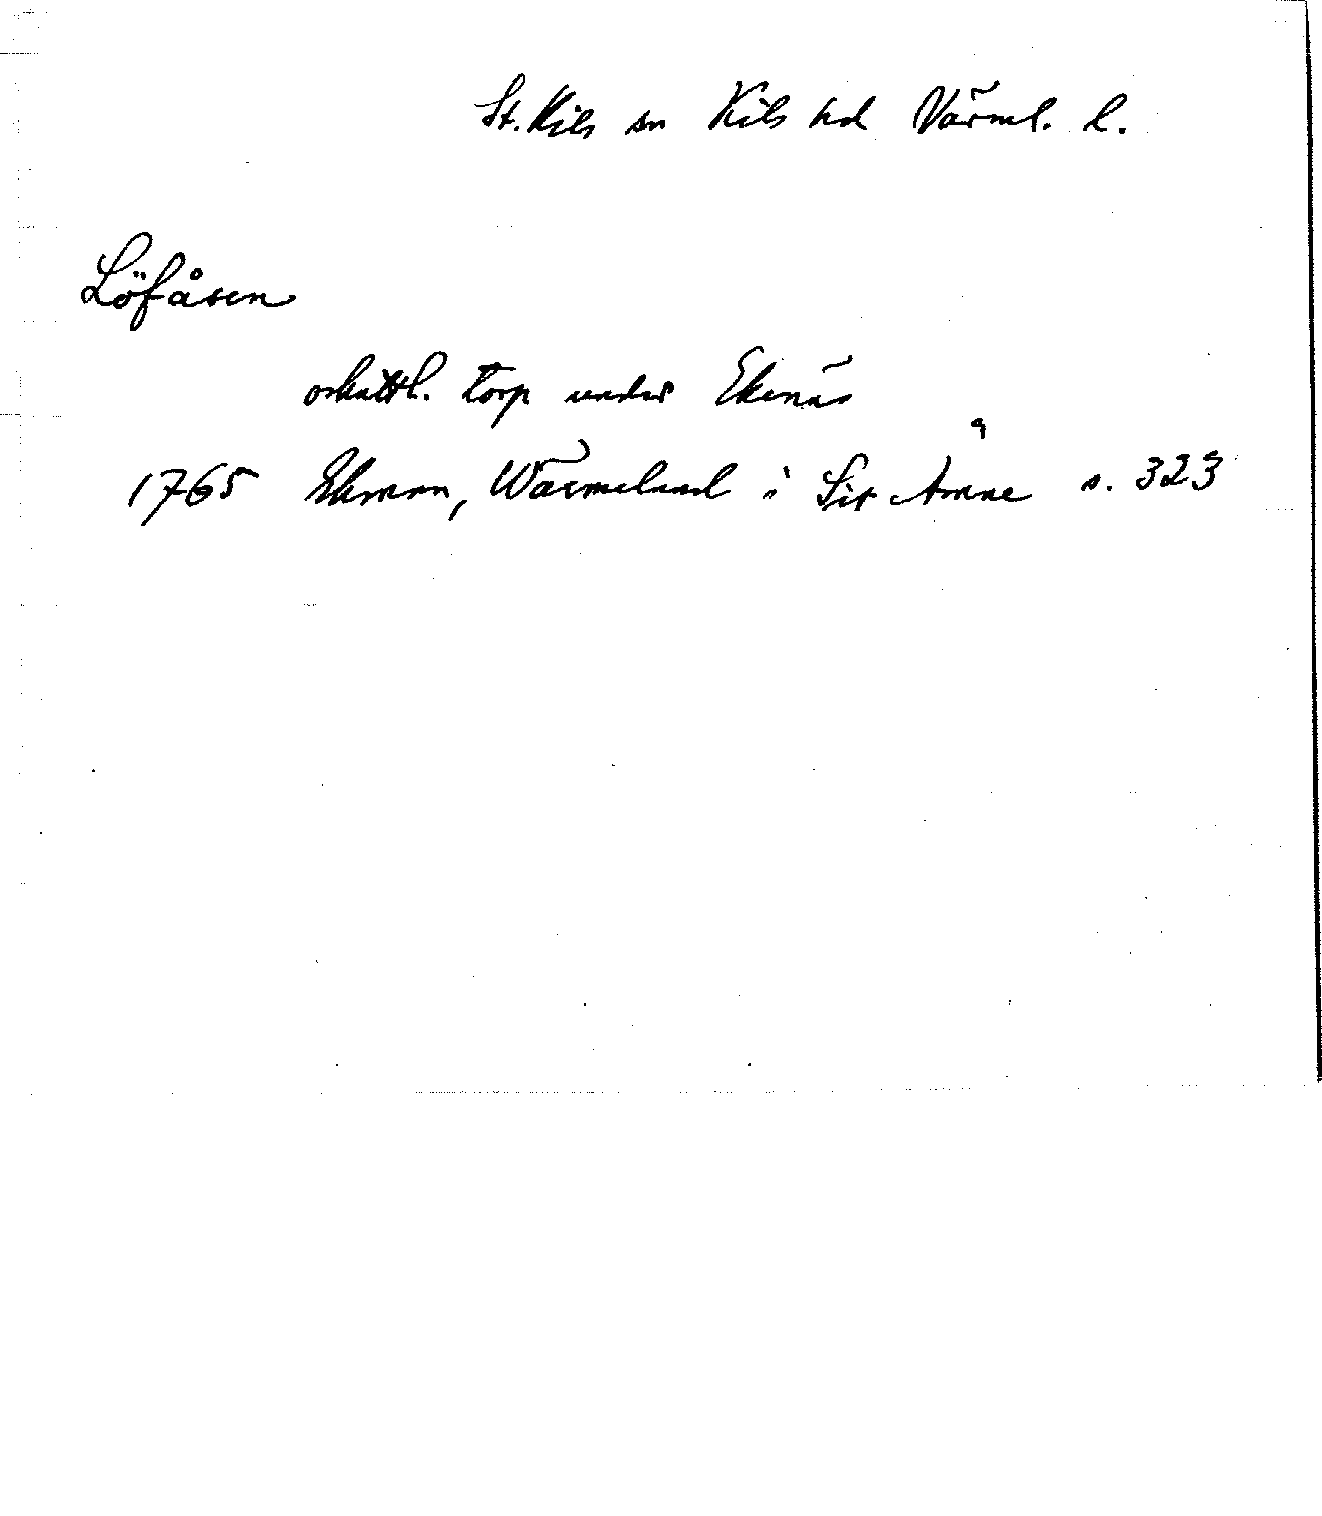 St. Kils sn Kils hd Värml. l.
Löfåsen
oskattl. torp under Ekenäs
1765 Ekman, Wärmeland i Sit Ämne s. 323